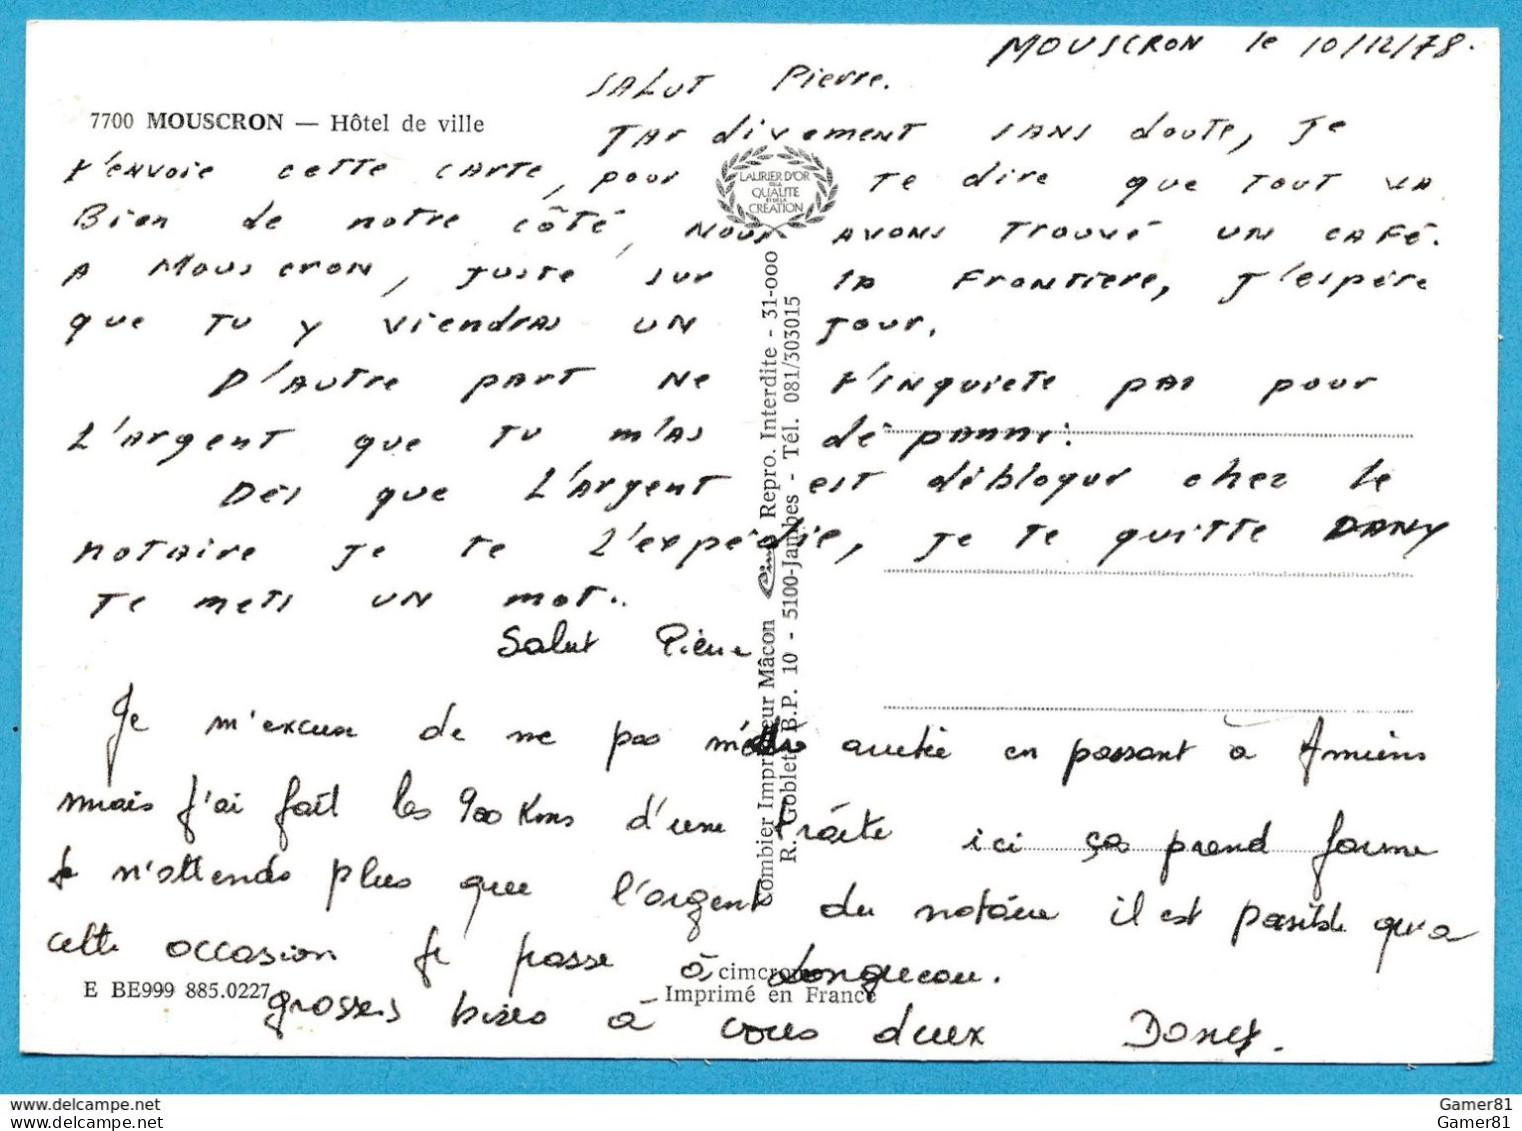 MOUSCRON le 10/12/78.
SALUT Pierre.
7700 MOUSCRON — Hôtel de ville
TARdivement SANS doute, Je
t'envoie cette CARTE, pour te dire que tout VA
Bien de notre côté, nous AVONS TROUVÉ UN CAFÉ.
A MOUSCRON, juste sur la Frontiere, J'espère
que TU y viendras UN jour.
D'Autre part Ne t'inquiete pas pour
L'Argent que TU m'as dépanné.
Dès que L'Argent est débloquer chez le
notaire je te L'expédie, je te quitte DANY
Te mets UN mot..
Salut Pierre
Je m'excuse de ne pas arretée en passant à Amiens
mais j'ai fait les 900 Kms d'une traite ici ças prend forme
je n'attends plus que l'argent du notaire il est possible qu'a
cette occasion je passe à Longueau.
grosses bises à vous deux Dany.
LAURIER D'OR
DE LA
QUALITE
ET DE LA
CREATION
Combier Imprimeur Mâcon Cim Repro. Interdite - 31-000
R. Goblet - B.P. 10 - 5100-Jambes - Tél. 081/303015
E BE999 885.0227
cimcrome
Imprimé en France
Gamer81
Gamer81